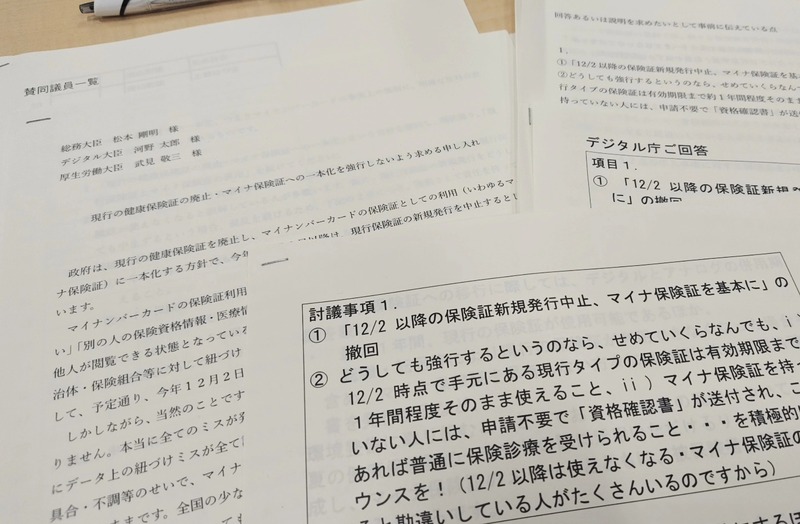 賛同議員一覧
総務大臣 松本 剛明 様
デジタル大臣 河野 太郎 様
厚生労働大臣 武見 敬三 様
現行の健康保険証の廃止・マイナ保険証への一本化を強行しないよう求める申し入れ
政府は、現行の健康保険証を廃止し、マイナンバーカードの保険証としての利用（いわゆるマ
ナ保険証）に一本化する方針で、今年
以降は、現行保険証の新規発行を中止すると
います。
マイナンバーカードの保険証利用
い」「別の人の保険資格情報・医療情
他人が閲覧できる状態となっている
治体・保険組合等に対して紐づけ
して、予定通り、今年１２月２日
しかしながら、当然のことです
りません。本当に全てのミスが発
にデータ上の紐づけミスが全て
具合・不調等のせいで、マイナ
ままです。全国の少な
回答あるいは説明を求めたいとして事前に伝えている点
1．
①「12/2以降の保険証新規発行中止、マイナ保険証を基本
②どうしても強行するというのなら、せめていくらなんで
行タイプの保険証は有効期限まで約１年間程度そのまま
持っていない人には、申請不要で「資格確認書」が送
デジタル庁ご回答
項目１．
① 「12/2 以降の保険証新規
に」の撤回
討議事項１．
① 「12/2 以降の保険証新規発行中止、マイナ保険証を基本に」の
撤回
② どうしても強行するというのなら、せめていくらなんでも、ⅰ
12/2 時点で手元にある現行タイプの保険証は有効期限まで
１年間程度そのまま使えること、ⅱ）マイナ保険証を持
いない人には、申請不要で「資格確認書」が送付され、こ
あれば普通に保険診療を受けられること・・・を積極的
ウンスを！（12/2 以降は使えなくなる・マイナ保険証の
ると勘違いしている人がたくさんいるのですから）